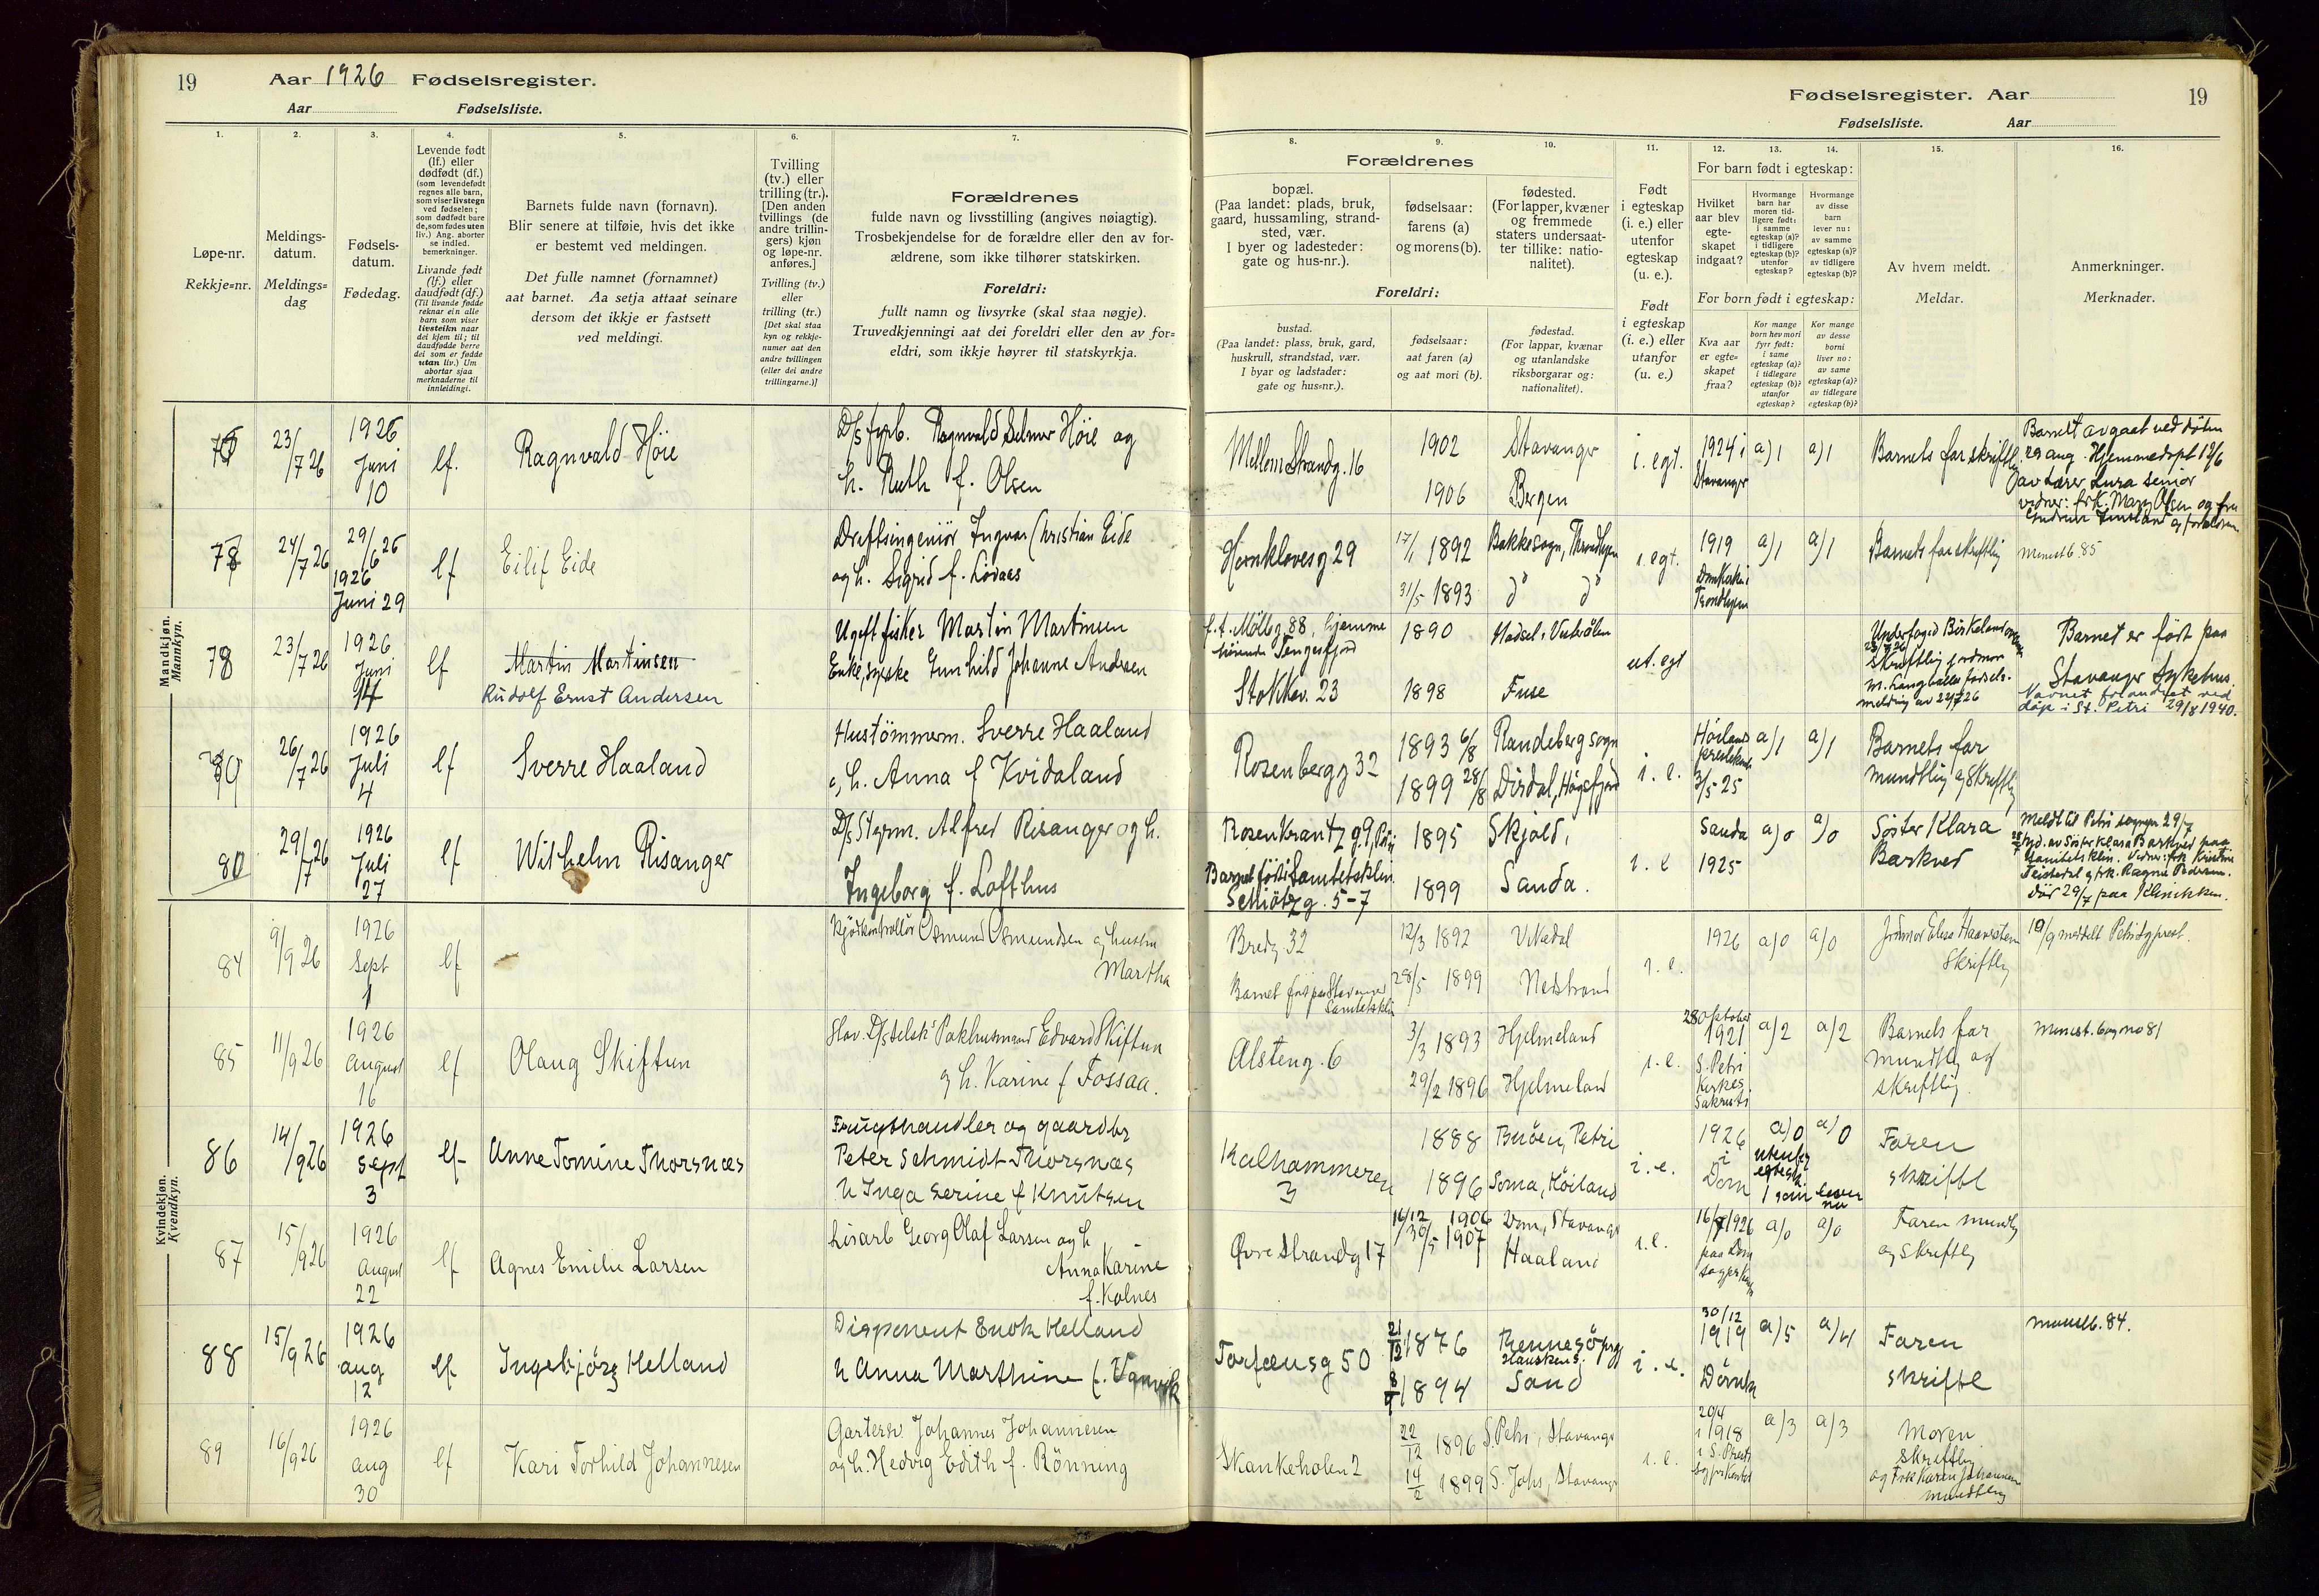 19
Aar 1926 Fødselsregister.
Aar Fødselsliste.
1.
2.
3.
4.
5.
6.
7.
Løpe-nr.
Rekkje=nr.
Meldings-
datum.
Meldings=
dag
Fødsels-
datum.
Fødedag.
Levende født
(lf.) eller
dødfødt (df.)
(som levendefødt
regnes alle barn,
som viser livstegn
ved fødselen;
som dødfødt bare
de, som fødes uten
liv.) Ang. aborter
se indled.
bemerkninger.
Livande fødd
(lf.) eller
daudfødt (df.)
(Til livande fødde
reknar ein alle
barn som viser
livsteikn naar
dei kjem til; til
daudfødde berre
dei som er fødde
utan liv.) Um
abortar sjaa
merknaderne til
innleidingi.
Barnets fulde navn (fornavn).
Blir senere at tilføie, hvis det ikke
er bestemt ved meldingen.
Det fulle namnet (fornamnet)
aat barnet. Aa setja attaat seinare
dersom det ikkje er fastsett
ved meldingi.
Tvilling
(tv.) eller
trilling (tr.).
[Den anden
tvillings (de
andre trillin-
gers) kjøn
og løpe-nr.
anføres.]
Tvilling (tv.)
eller
trilling (tr.)
[Det skal staa
kyn og rekkje-
numer aat den
andre tvillingen
(eller dei andre
trillingarne.)]
Forældrenes
fulde navn og livsstilling (angives nøiagtig).
Trosbekjendelse for de forældre eller den av for-
ældrene, som ikke tilhører statskirken.
Foreldri:
fullt namn og livsyrke (skal staa nøgje).
Truvedkjenningi aat dei foreldri eller den av for=
eldri, som ikkje høyrer til statskyrkja.
Mandkjøn.
Mannkyn.
23/7 26
1926
Juni
10
lf.
Ragnvald Höie
D/s fyrb. Ragnvald Selmer Höie og
h. Ruth f. Olsen
78
24/7 26
29/6 26
1926
Juni 29
lf
Eilif Eide
Driftsingeniör Ingvar Christian Eide
og h. Sigrid f. Lövaas
78
23/7 26
1926
Juni
lf
Martin Martinsen
Rudolf Ernst Andersen
Ugift fisker Martin Martinsen
Enke, syerske Gunhild Johanne Andersen
26/7 26
1926
Juli
4
lf
Sverre Haaland
Hustömmerm. Sverre Haaland
og h. Anna f Kvidaland
80
29/7 26
1926
Juli
27
lf
Wilhelm Risanger
D/s Styrm. Alfred Risanger og h.
Ingeborg f. Lofthus
Kvindekjøn.
Kvendkyn.
84
9/9 26
1926
Sept
1
lf
Kjödkontrollör Osmund Osmundsen og hustru
Martha
85
11/9 26
1926
August
16
lf
Olaug Skiftun
Stav. D/s selsk's Pakhusmand Edvard Skiftun
og h. Karine f Fossaa.
86
14/9 26
1926
Sept
3
lf
Anne Tomine Thorsnæs
Frugthandler og gaardbr
Peter Schmidt-Thorsnæs
h Inga Serine f Knutsen
87
15/9 26
1926
August
22
lf
Agnes Emilie Larsen
Lösarb Georg Olaf Larsen og h
Anna Karine
f. Kolnes
88
15/9 26
1926
aug
12
lf
Ingebjörg Helland
Disponent Enok Helland
h Anna Marthine f.
89
16/9 26
1926
aug
30
lf
Kari Torhild Johannesen
Gartersv. Johannes Johannesen
og h. Hedvig Edith f. Rönning
Fødselsregister. Aar
19
Fødselsliste. Aar
8.
9.
10.
11.
12.
13.
14.
15.
16.
Forældrenes
bopæl.
(Paa landet: plads, bruk,
gaard, hussamling, strand-
sted, vær.
I byer og ladesteder:
gate og hus-nr.).
fødselsaar:
farens (a)
og morens (b).
fødested.
(For lapper, kvæner
og fremmede
staters undersaat-
ter tillike: natio-
nalitet).
Foreldri:
bustad.
(Paa landet: plass, bruk, gard,
huskrull, strandstad, vær.
I byar og ladstader:
gate og hus=nr.).
fødselsaar:
aat faren (a)
og aat mori (b).
fødestad.
(For lappar, kvænar
og utanlandske
riksborgarar og:
nationalitet).
Født
i egteskap
(i. e.) eller
utenfor
egteskap
(u. e.).
Født
i egteskap
(i. e.) eller
utanfor
egteskap
(u. e.)
For barn født i egteskap:
Hvilket
aar blev
egte-
skapet
indgaat?
Hvormange
barn har
moren tid-
ligere født:
i samme
egteskap (a)?
i tidligere
egteskap (b)?
utenfor
egteskap?
Hvormange
av disse
barn
lever nu:
av samme
egteskap (a)?
av tidligere
egteskap (b)?
For born født i egteskap:
Kva aar
er egte=
skapet
fraa?
Kor mange
born hev mori
fyrr født:
i same
egteskap (a)?
i tidlegare
egteskap (b)?
utanfor
egteskap?
Kor mange
av desse
borni
liver no:
av same
egteskap (a)?
av tidlegare
egteskap (b)?
Av hvem meldt.
Meldar.
Anmerkninger.
Merknader.
Mellem Strandg. 16
1902
1906
Stavanger
Bergen
i. egt.
1924 i
Stavanger
a) 1
a) 1
Barnets far skriftlig
Barnet avgaat ved döden
29 aug. Hjemmedöpt 12/6
av Lærer Lura senior
vidner: frk. Mary Olsen og fru
29
17/1 1892
31/5 1893
Bakke sogn, Throndhjem
do do
i. egt.
1919
Domkirken i
Trondhjem
a) 1
a) 1
Barnets far skriftlig
Minist b. 85
f.t. Möllerg 88, hjemme
hörende Tengesfjord
Stokkav. 23
1890
1898
Hadsel, Vesterålen
Fuse
ut. egt
Underfoged Birkeland
Skriftlig jordmor
M. Langballes fødsels-
melding av 24/7 26
Barnet er født paa
Stavanger Sykehus.
Navnet forandret ved
dåp i St. Petri 29/8 1940.
Rosenbergg 32
1893 6/8
1899 28/8
Randeberg sogn
Dirdal, Högsfjord
i. e.
Höiland
3/5 25
a) 1
a) 1
Barnets far
mundtlig og skriftlig
Rosenkrantz g. 9, Petri
Barnet født i Sanitetsklin.
Schiötz g. 5-7
1895
1899
Skjold,
Sanda.
i. e
Sanda
1925
a) 0
a) 0
Søster Klara
Barkved
Meldt til Petri sogn 29/7
Hjd. av Søster Klara Barkved paa
Sanitetsklin. Vidner: frk Kristine
Teistedal og frk. Ragna Pedersen.
Död 29/7 paa Klinikken.
Bredg 32
Barnet født paa Stavanger
Sanitetsklin
12/3 1892
28/5 1899
Vikedal
Nedstrand
i. e.
1926
a) 0
a) 0
Jordmor Elesa Haaverstein
Skriftlig
10/9 meddelt Petri sgprest.
Alsteng. 6
3/3 1893
29/2 1896
Hjelmeland
Hjelmeland
i. e.
28 Oktober
1921
S. Petri
Kirkes
Sakristi
a) 2
a) 2
Barnets far
mundtlig og
skriftlig
Minist. bog no 81
Kalhammeren
3
1888
1896
Buöen, Petri
Soma, Höiland
i. e.
1926
i
Dom
a) 0
utenfor
egtesk.
1 som lever
nu
a) 0
Faren
skriftl
Øvre Strandg 17
16/12 1906
30/5 1907
Dom, Stavanger
Haaland
i. e.
16/7 1926
paa Dom
a) 0
a) 0
Faren mundtlig
og skriftlig
Torfæusg 50
21/12 1876
1894
Rennesö prgj
Hausken s.
Sand
i. e.
30/12
1919
Domk
a) 5
a) 4
Faren
skriftl
Minist b. 84.
Skankeholen 2
22/12 1896
14/2 1899
S. Petri, Stavanger
S. Johs, Stavanger
i. e.
20/4
i 1918
a) 3
a) 3
Moren
skriftlig
og Frk Karen Johannesen
mundtlig